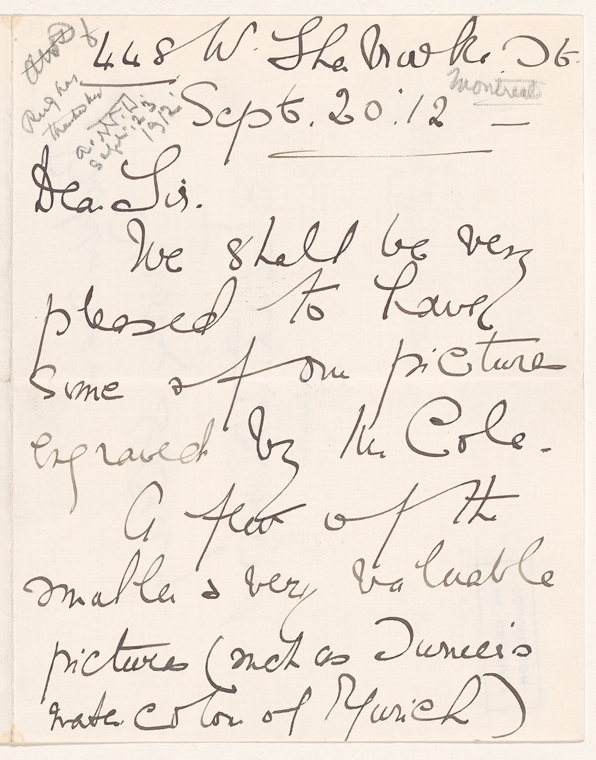 448 W. Sherbrooke St.
Montreal
Sept. 20. '12
Thanks for
a. N. D.
Sept. 23
1912
Dear Sir.
We shall be very
pleased to have
some of our pictures
engraved by Mr Cole.
A few of the
smaller & very valuable
pictures (such as Turner's
water color of Zurich)